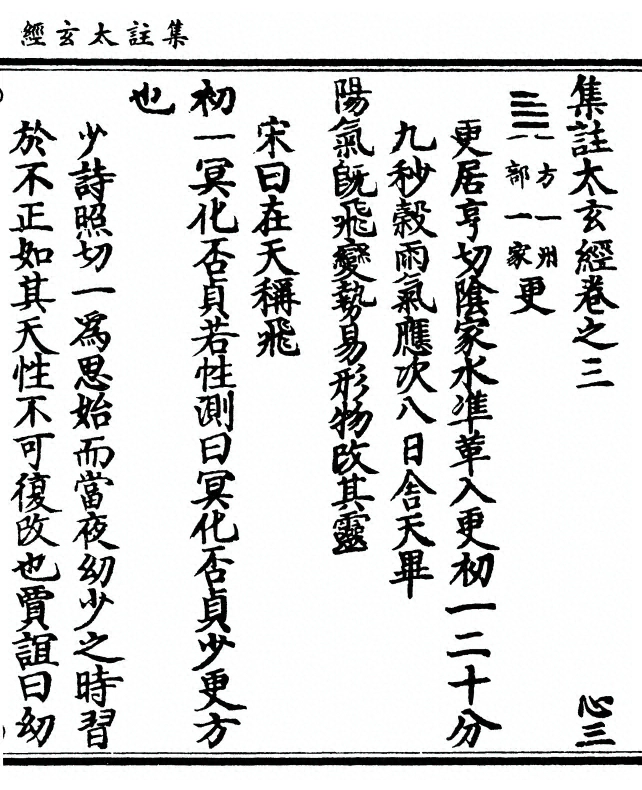 集註太玄經
集註太玄經卷之三 心三
一方一州一部一家更
更居亨切陰家水準革入更初一二十分
九秒穀雨氣應次八日舍天畢
陽氣旣飛變勢易形物改其靈
宋曰在天稱飛
初一冥化否貞若性測曰冥化否貞少更方
也
少詩照切一爲思始而當夜幼少之時習
於不正如其天性不可復改也賈誼曰幼